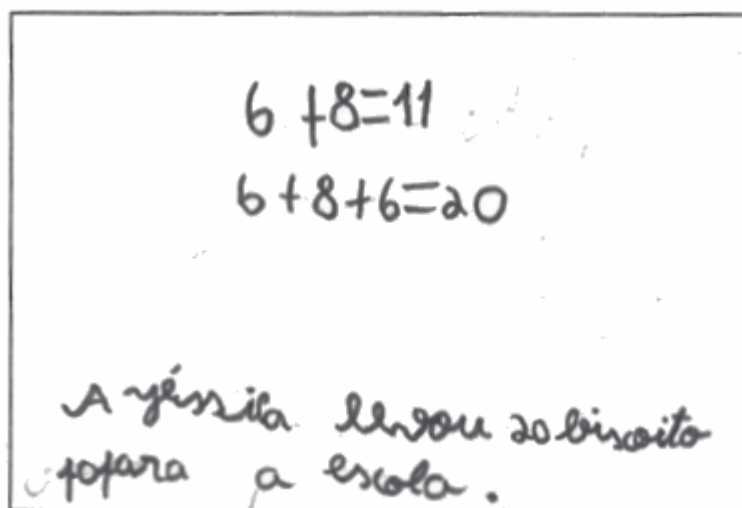 6 + 8 = 11
6 + 8 + 6 = 20
A Jéssica levou 20 biscoito
para a escola.